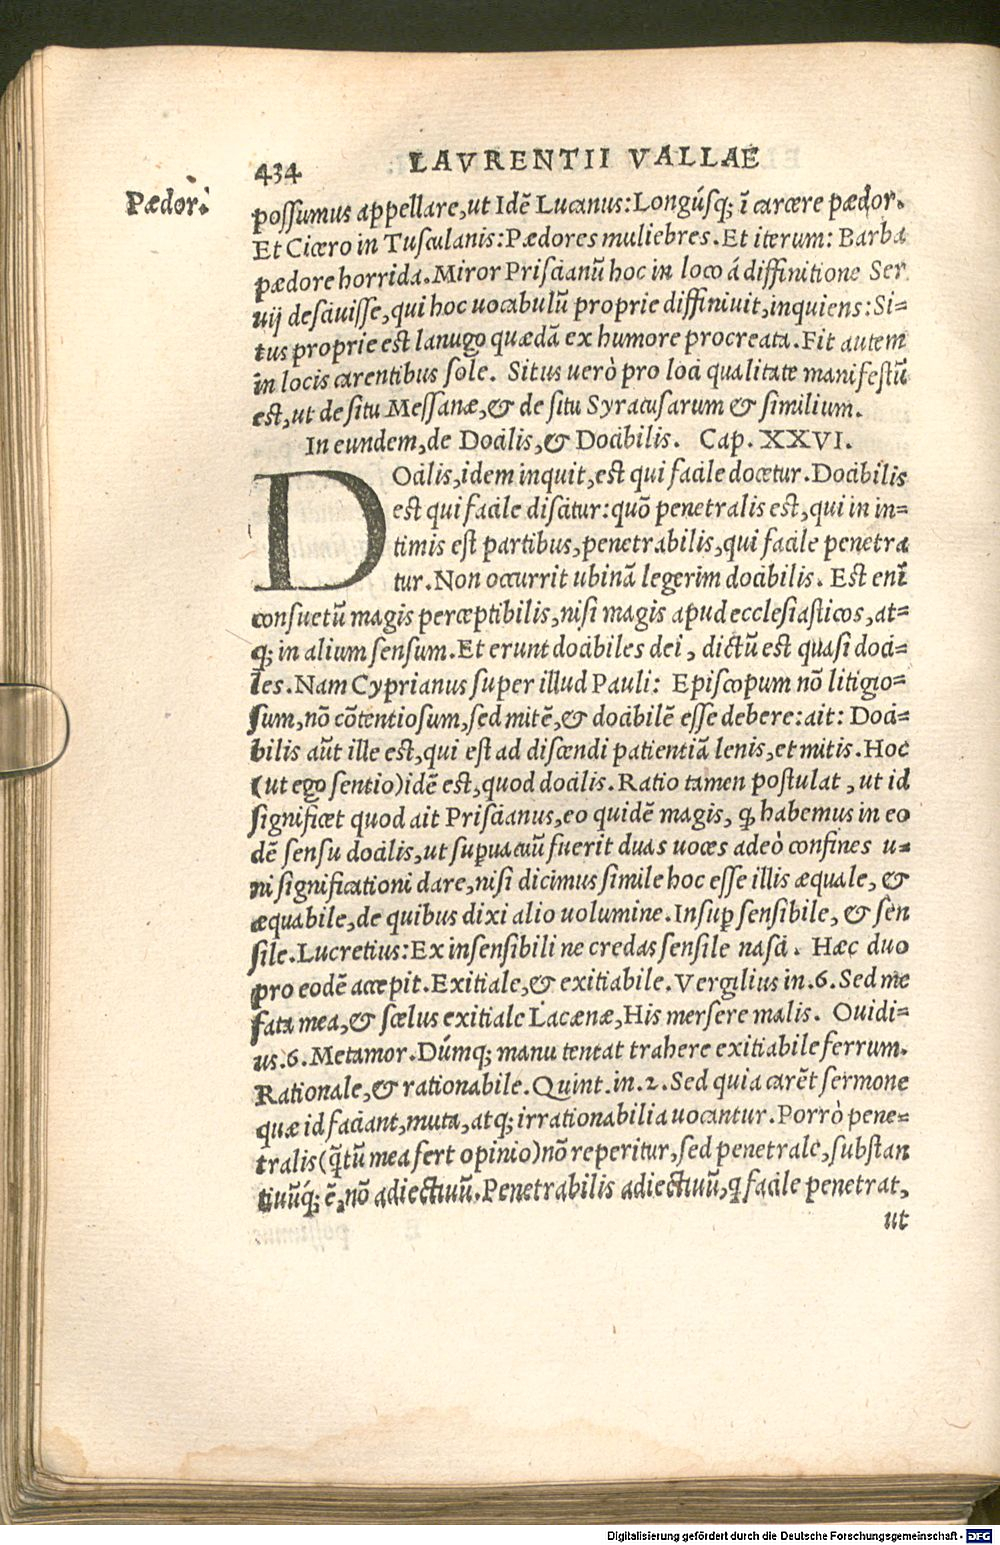 434 LAVRENTII VALLAE
Pædor.
possumus appellare, ut Idē Lucanus: Longúsq; ī carcere pædor.
Et Cicero in Tusculanis: Pædores muliebres. Et iterum: Barba
pædore horrida. Miror Priscianū hoc in loco á diffinitione Ser
uij desciuisse, qui hoc uocabulū proprie diffiniuit, inquiens: Si=
tus proprie est lanugo quædā ex humore procreata. Fit autem
in locis carentibus sole. Situs uerò pro loci qualitate manifestū
est, ut de situ Messanæ, & de situ Syracusarum & similium.
In eundem, de Docilis, & Docibilis. Cap. XXVI.
DOcilis, idem inquit, est qui facile docetur. Docibilis
est qui facile discitur: quō penetralis est, qui in in=
timis est partibus, penetrabilis, qui facile penetra
tur. Non occurrit ubinā legerim docibilis. Est enī
consuetū magis perceptibilis, nisi magis apud ecclesiasticos, at=
q; in alium sensum. Et erunt docibiles dei, dictū est quasi doci=
les. Nam Cyprianus super illud Pauli: Episcopum nō litigio=
sum, nō cōtentiosum, sed mitē, & docibilē esse debere: ait: Doci=
bilis aūt ille est, qui est ad discendi patientiā lenis, et mitis. Hoc
(ut ego sentio) idē est, quod docilis. Ratio tamen postulat, ut id
significet quod ait Priscianus, eo quidē magis, q̨ habemus in eo
dē sensu docilis, ut supuacuū fuerit duas uoces adeò confines u=
ni significationi dare, nisi dicimus simile hoc esse illis æquale, &
æquabile, de quibus dixi alio uolumine. Insup sensibile, & sen
sile. Lucretius: Ex insensibili ne credas sensile nasci. Hæc duo
pro eodē accepit. Exitiale, & exitiabile. Vergilius in .6. Sed me
fata mea, & scelus exitiale Lacænæ, His mersere malis. Ouidi=
us .6. Metamor. Dúmq; manu tentat trahere exitiabile ferrum.
Rationale, & rationabile. Quint. in .2. Sed quia carēt sermone
quæ id faciant, muta, atq; irrationabilia uocantur. Porrò pene=
tralis (q̄tū mea fert opinio) nō reperitur, sed penetrale, substan
tiuūq́; ē, nō adiectiuū. Penetrabilis adiectiuū, q facile penetrat,
ut
Digitalisierung gefördert durch die Deutsche Forschungsgemeinschaft - DFG